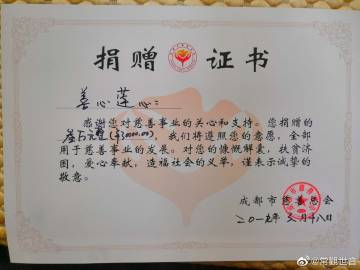 捐赠证书
善心莲心：
感谢您对慈善事业的关心和支持。您捐赠的
叁万元整（¥30000.00），我们将遵照您的意愿，全部
用于慈善事业的发展。对您的慷慨解囊，扶贫济
困，爱心奉献，造福社会的义举，谨表示诚挚的
敬意。
成都市慈善总会
二〇一九年 月十八日
@常觀世音